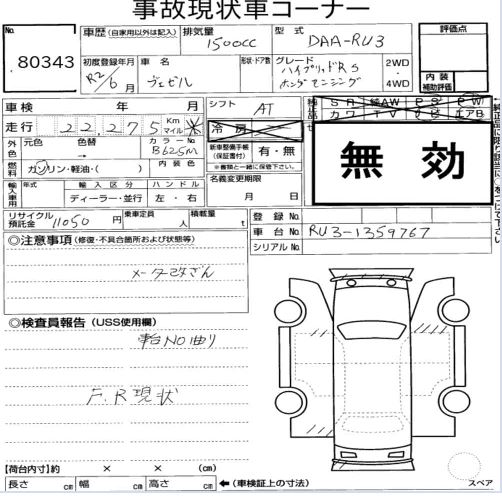 事故現状車コーナー
No.
80343
車歴(自家用以外は記入)
排気量
1500CC
型式
DAA-RU3
評価点
初度登録年月
R2/6月
車名
ヴェゼル
形状・ドア数
グレード
ハイブリッドRS
ホンダセンシング
2WD
・
4WD
内装
補助評価
車検 年 月
シフト
AT
純正品
SR
純AW
PS
PW
カワ
TV
ナビ
エアB
走行
22,275
Km
マイル
冷房
外色
元色
色替
→
カラーNo.
B625M
新車整備手帳
(保証書付)
有・無
※書類と一緒に保管下さい。
無効
燃料
ガソリン・軽油・( )
内装色
名義変更期限
月 日
輸入車用
年式
輸入区分
ディーラー・並行
ハンドル
左・右
リサイクル
預託金
11050円
乗車定員
人
積載量
t
登録No.
車台No.
RU3-1359767
シリアルNo.
◎注意事項(修復・不具合箇所および状態等)
メーター改ざん
◎検査員報告(USS使用欄)
車台NO曲り
F.R現状
【荷台内寸】約 × × (cm)
長さ cm 幅 cm 高さ cm ←(車検証上の寸法)
スペア